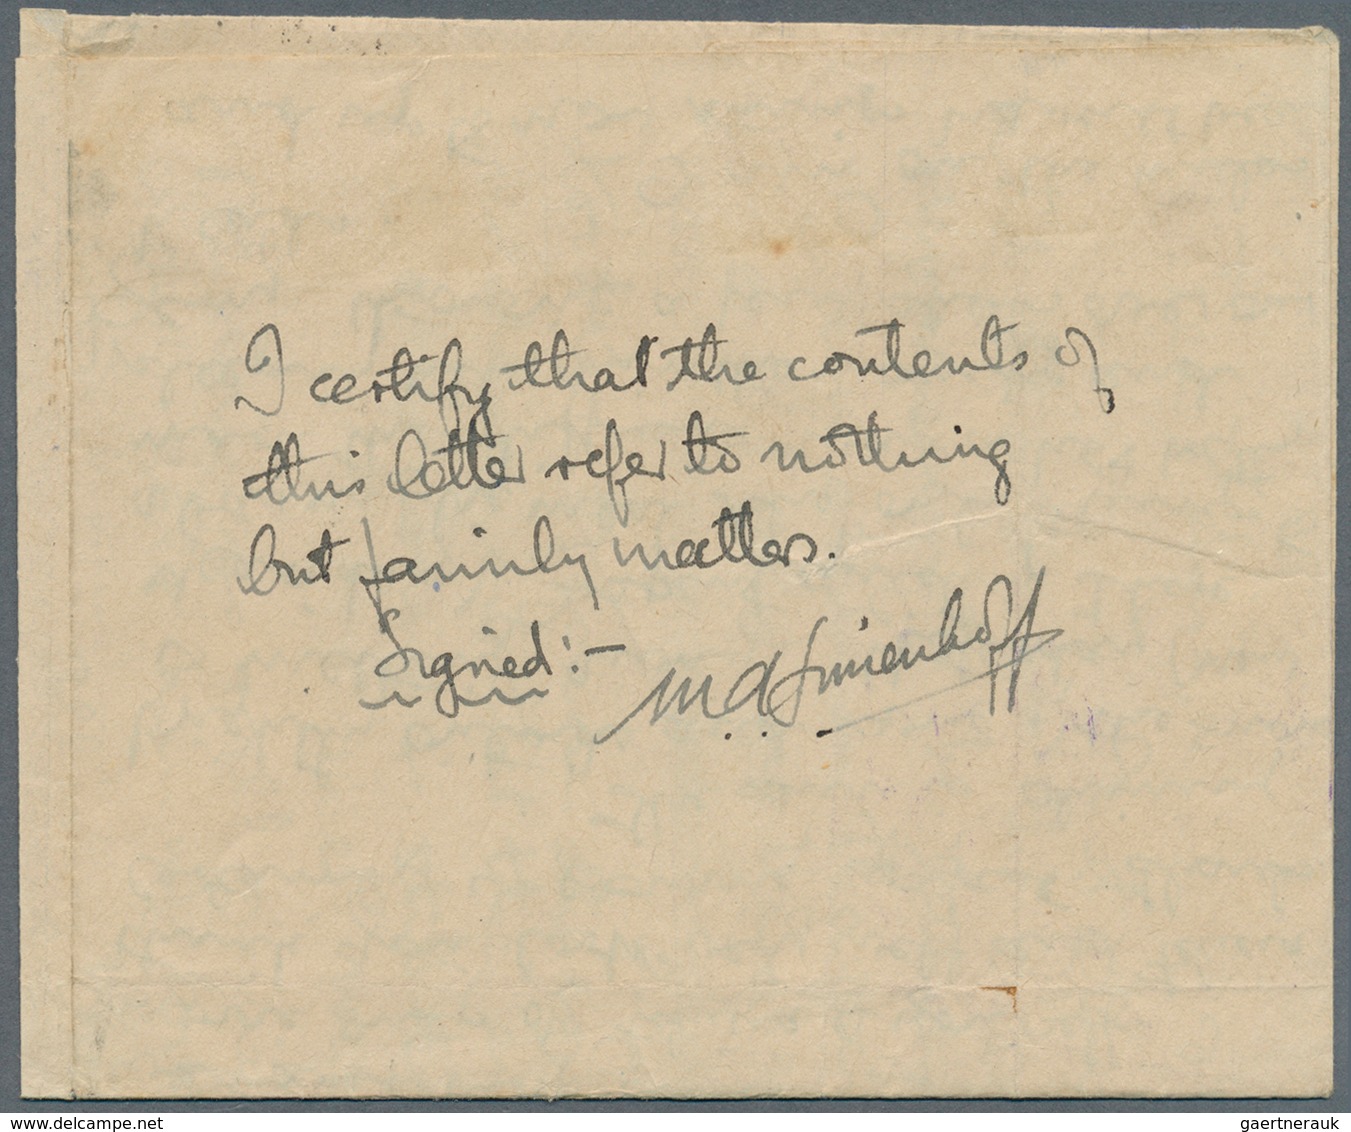 I certify that the contents of
this letter refer to nothing
but family matters.
Signed:-
www.delcampe.net
gaertnerauk